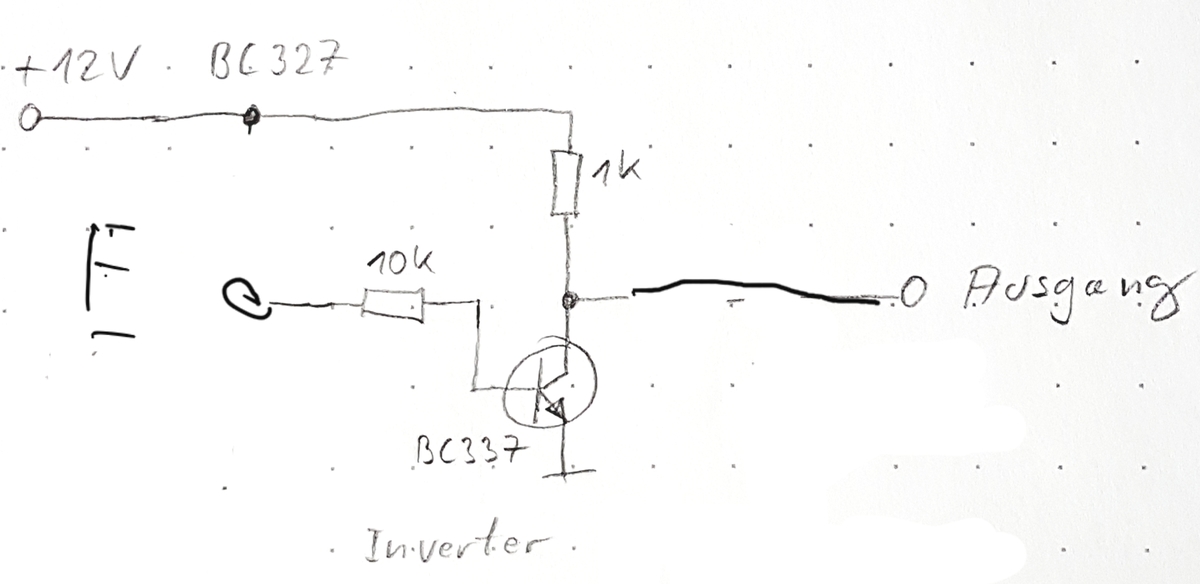 +12V BC327
1k
10k
E
Ausgang
BC337
Inverter